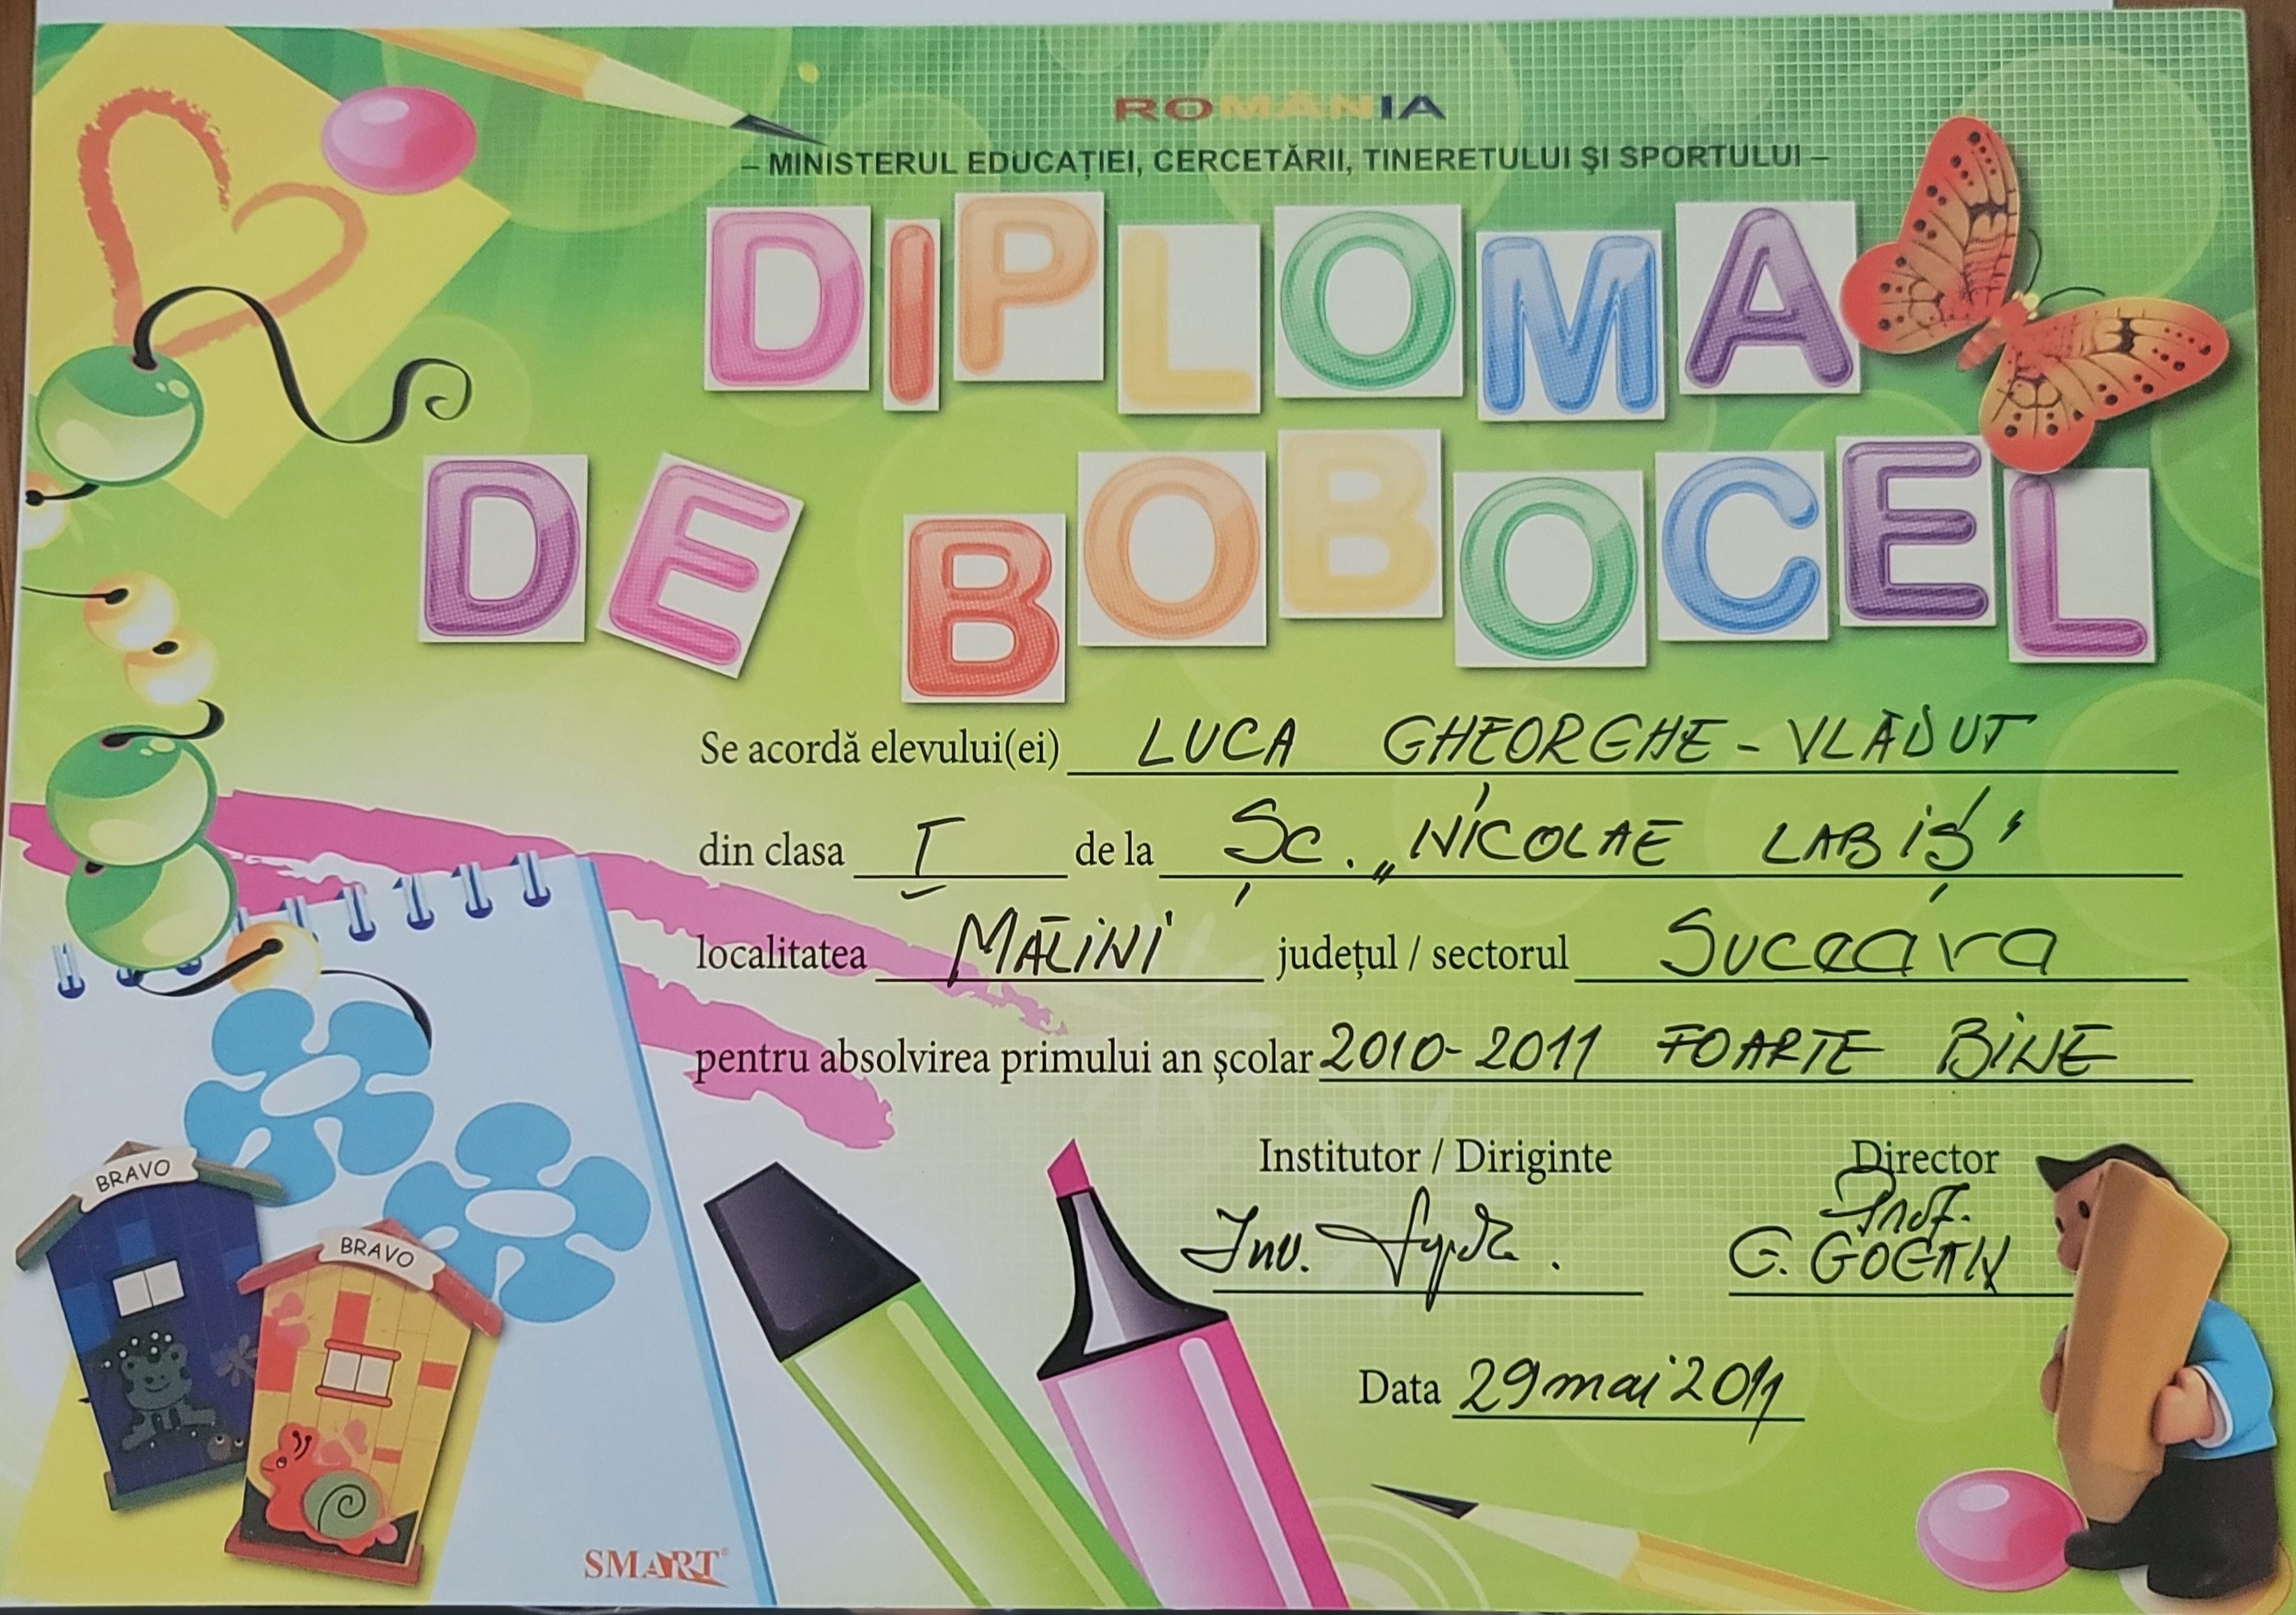 ROMÂNIA
– MINISTERUL EDUCAȚIEI, CERCETĂRII, TINERETULUI ŞI SPORTULUI –
DIPLOMA
DE BOBOCEL
Se acordă elevului(ei) LUCA GHEORGHE - VLĂDUȚ
din clasa I de la Șc. „NICOLAE LABIȘ"
localitatea MĂLINI județul / sectorul Suceava
pentru absolvirea primului an şcolar 2010-2011 FOARTE BINE
Institutor / Diriginte Director
Înv. Prof.
G. GOGAN
Data 29 mai 2011
BRAVO
BRAVO
SMART